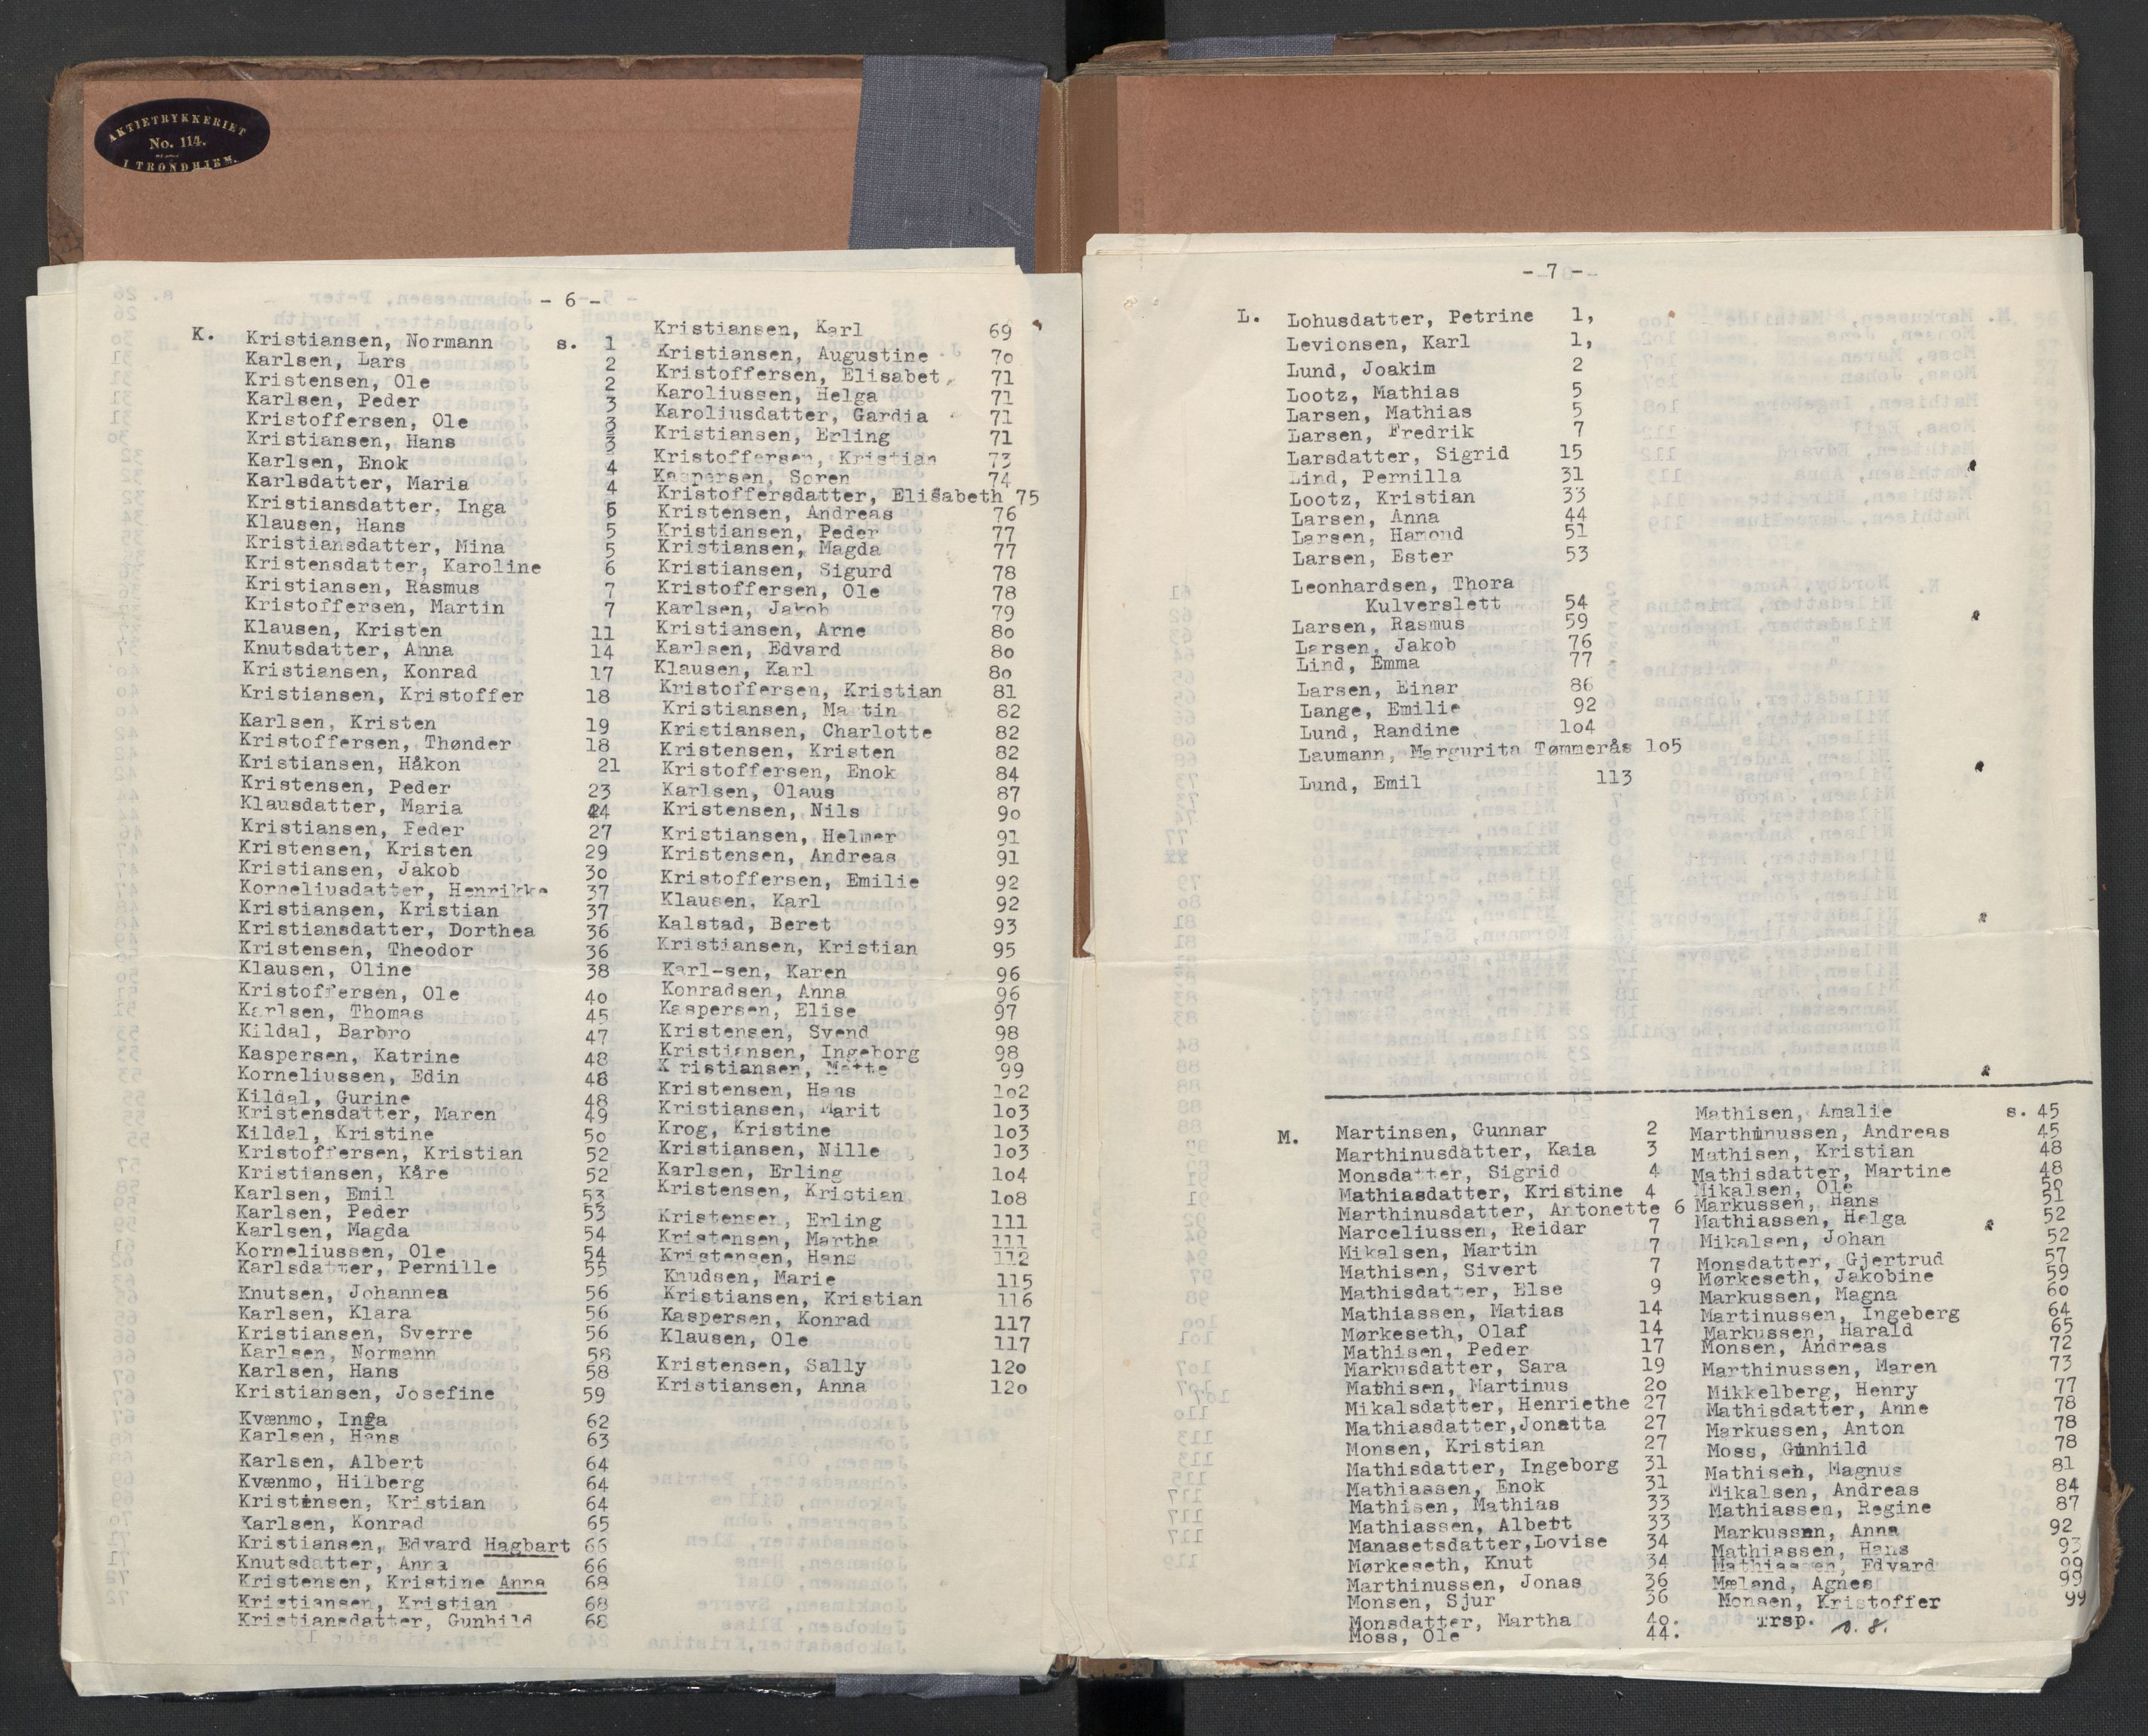 AKTIETRYKKERIET
No. 114.
I TRONDHJEM.
- 6 -
K.
Kristiansen, Normann s. 1
Karlsen, Lars 2
Kristensen, Ole 2
Karlsen, Peder 3
Kristoffersen, Ole 3
Kristiansen, Hans 3
Karlsen, Enok 4
Karlsdatter, Maria 4
Kristiansdatter, Inga 5
Klausen, Hans 5
Kristiansdatter, Mina 5
Kristensdatter, Karoline 6
Kristiansen, Rasmus 7
Kristoffersen, Martin 7
Klausen, Kristen 11
Knutsdatter, Anna 14
Kristiansen, Konrad 17
Kristiansen, Kristoffer 18
Karlsen, Kristen 19
Kristoffersen, Thønder 18
Kristiansen, Håkon 21
Kristensen, Peder 23
Klausdatter, Maria 24
Kristiansen, Peder 27
Kristensen, Kristen 29
Kristiansen, Jakob 3o
Korneliusdatter, Henrikke 37
Kristiansen, Kristian 37
Kristiansdatter, Dorthea 36
Kristensen, Theodor 36
Klausen, Oline 38
Kristoffersen, Ole 4o
Karlsen, Thomas 45
Kildal, Barbro 47
Kaspersen, Katrine 48
Korneliussen, Edin 48
Kildal, Gurine 48
Kristensdatter, Maren 49
Kildal, Kristine 5o
Kristoffersen, Kristian 52
Kristiansen, Kåre 52
Karlsen, Emil 53
Karlsen, Peder 53
Karlsen, Magda 54
Korneliussen, Ole 54
Karlsdatter, Pernille 55
Knutsen, Johannes 56
Karlsen, Klara 56
Kristiansen, Sverre 56
Karlsen, Normann 58
Karlsen, Hans 58
Kristiansen, Josefine 59
Kvænmo, Inga 62
Karlsen, Hans 63
Karlsen, Albert 64
Kvænmo, Hilberg 64
Kristensen, Kristian 64
Karlsen, Konrad 65
Kristiansen, Edvard Hagbart 66
Knutsdatter, Anna 66
Kristensen, Kristine Anna 68
Kristiansen, Kristian 68
Kristiansdatter, Gunhild 68
Kristiansen, Karl 69
Kristiansen, Augustine 7o
Kristoffersen, Elisabet 71
Karoliussen, Helga 71
Karoliusdatter, Gardia 71
Kristiansen, Erling 71
Kristoffersen, Kristian 73
Kaspersen, Soren 74
Kristoffersdatter, Elisabeth 75
Kristensen, Andreas 76
Kristiansen, Peder 77
Kristiansen, Magda 77
Kristiansen, Sigurd 78
Kristoffersen, Ole 78
Karlsen, Jakob 79
Kristiansen, Arne 8o
Karlsen, Edvard 8o
Klausen, Karl 8o
Kristoffersen, Kristian 81
Kristiansen, Martin 82
Kristiansen, Charlotte 82
Kristensen, Kristen 82
Kristoffersen, Enok 84
Karlsen, Olaus 87
Kristensen, Nils 9o
Kristiansen, Helmer 91
Kristensen, Andreas 91
Kristoffersen, Emilie 92
Klausen, Karl 92
Kalstad, Beret 93
Kristiansen, Kristian 95
Karl-sen, Karen 96
Konradsen, Anna 96
Kaspersen, Elise 97
Kristensen, Svend 98
Kristiansen, Ingeborg 98
K ristiansen, Mette 99
Kristensen, Hans 1o2
Kristiansen, Marit 1o3
Krog, Kristine 1o3
Kristiansen, Nille 1o3
Karlsen, Erling 1o4
Kristensen, Kristian 1o8
Kristensen, Erling 111
Kristensen, Martha 111
Kristensen, Hans 112
Knudsen, Marie 115
Kristiansen, Kristian 116
Kaspersen, Konrad 117
Klausen, Ole 117
Kristensen, Sally 12o
Kristiansen, Anna 12o
- 7 -
L.
Lohusdatter, Petrine 1,
Levionsen, Karl 1,
Lund, Joakim 2
Lootz, Mathias 5
Larsen, Mathias 5
Larsen, Fredrik 7
Larsdatter, Sigrid 15
Lind, Pernilla 31
Lootz, Kristian 33
Larsen, Anna 44
Larsen, Hamond 51
Larsen, Ester 53
Leonhardsen, Thora
Kulverslett 54
Larsen, Rasmus 59
Larsen, Jakob 76
Lind, Emma 77
Larsen, Einar 86
Lange, Emilie 92
Lund, Randine 1o4
Laumann, Margurita Tømmerås 1o5
Lund, Emil 113
M.
Martinsen, Gunnar 2
Marthinusdatter, Kaia 3
Monsdatter, Sigrid 4
Mathiasdatter, Kristine 4
Marthinusdatter, Antonette 6
Marceliussen, Reidar 7
Mikalsen, Martin 7
Mathisen, Sivert 7
Mathisdatter, Else 9
Mathiassen, Matias 14
Mørkeseth, Olaf 14
Mathisen, Peder 17
Markusdatter, Sara 19
Mathisen, Martinus 2o
Mikalsdatter, Henriethe 27
Mathiasdatter,Jonatta 27
Monsen, Kristian 27
Mathisdatter, Ingeborg 31
Mathiassen, Enok 31
Mathisen, Mathias 33
Mathiassen, Albert 33
Manasetsdatter,Lovise 34
Mørkeseth, Knut 34
Marthinussen, Jonas 36
Monsen, Sjur 36
Monsdatter, Martha 4o.
Moss, Ole 44.
Mathisen, Amalie s. 45
Marthinussen, Andreas 45
Mathisen, Kristian 48
Mathisdatter, Martine 48
Mikalsen, Ole 5o
Markussen, Hans 51
Mathiassen, Helga 52
Mikalsen, Johan 52
Monsdatter, Gjertrud 57
Mørkeseth, Jakobine 59
Markussen, Magna 6o
Martinussen, Ingeberg 64
Markussen, Harald 65
Monsen, Andreas 72
Marthinussen, Maren 73
Mikkelberg, Henry 77
Mathisdatter, Anne 78
Markussen, Anton 78
Moss, Gunhild 78
Mathisen, Magnus 81
Mikalsen, Andreas 84
Mathiassen, Regine 87
Markussen, Anna 92
Mathiassen, Hans 93
Mathiassen, Edvard 99
Mæland, Agnes 99
Monsen, Kristoffer 99
Trsp. s. 8.